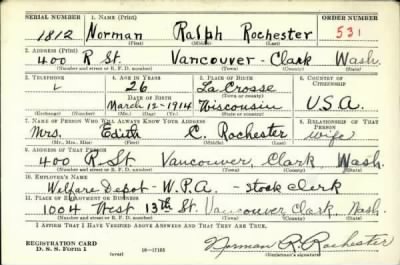 SERIAL NUMBER 1. NAME (Print) ORDER NUMBER
1812 Norman Ralph Rochester 531
(First) (Middle) (Last)
2. ADDRESS (Print)
400 R St. Vancouver - Clark Wash.
(Number and street or R. F. D. number) (Town) (County) (State)
3. TELEPHONE 4. AGE IN YEARS 5. PLACE OF BIRTH 6. COUNTRY OF CITIZENSHIP
26 La Crosse
DATE OF BIRTH (Town or county)
March 12-1914 Wisconsin U.S.A.
(Mo.) (Day) (Yr.) (State or country)
7. NAME OF PERSON WHO WILL ALWAYS KNOW YOUR ADDRESS 8. RELATIONSHIP OF THAT PERSON
Mrs. Edith C. Rochester Wife
(Mr., Mrs., Miss) (First) (Middle) (Last)
9. ADDRESS OF THAT PERSON
400 R St Vancouver, Clark Wash.
(Number and street or R. F. D. number) (Town) (County) (State)
10. EMPLOYER'S NAME
Welfare Depot - W.P.A. - Stock Clerk
11. PLACE OF EMPLOYMENT OR BUSINESS
1004 West 13th St. Vancouver Clark, Wash.
(Number and street or R. F. D. number) (Town) (County) (State)
I AFFIRM THAT I HAVE VERIFIED ABOVE ANSWERS AND THAT THEY ARE TRUE.
REGISTRATION CARD
D. S. S. Form 1 (over) Norman R. Rochester
(Registrant's signature)